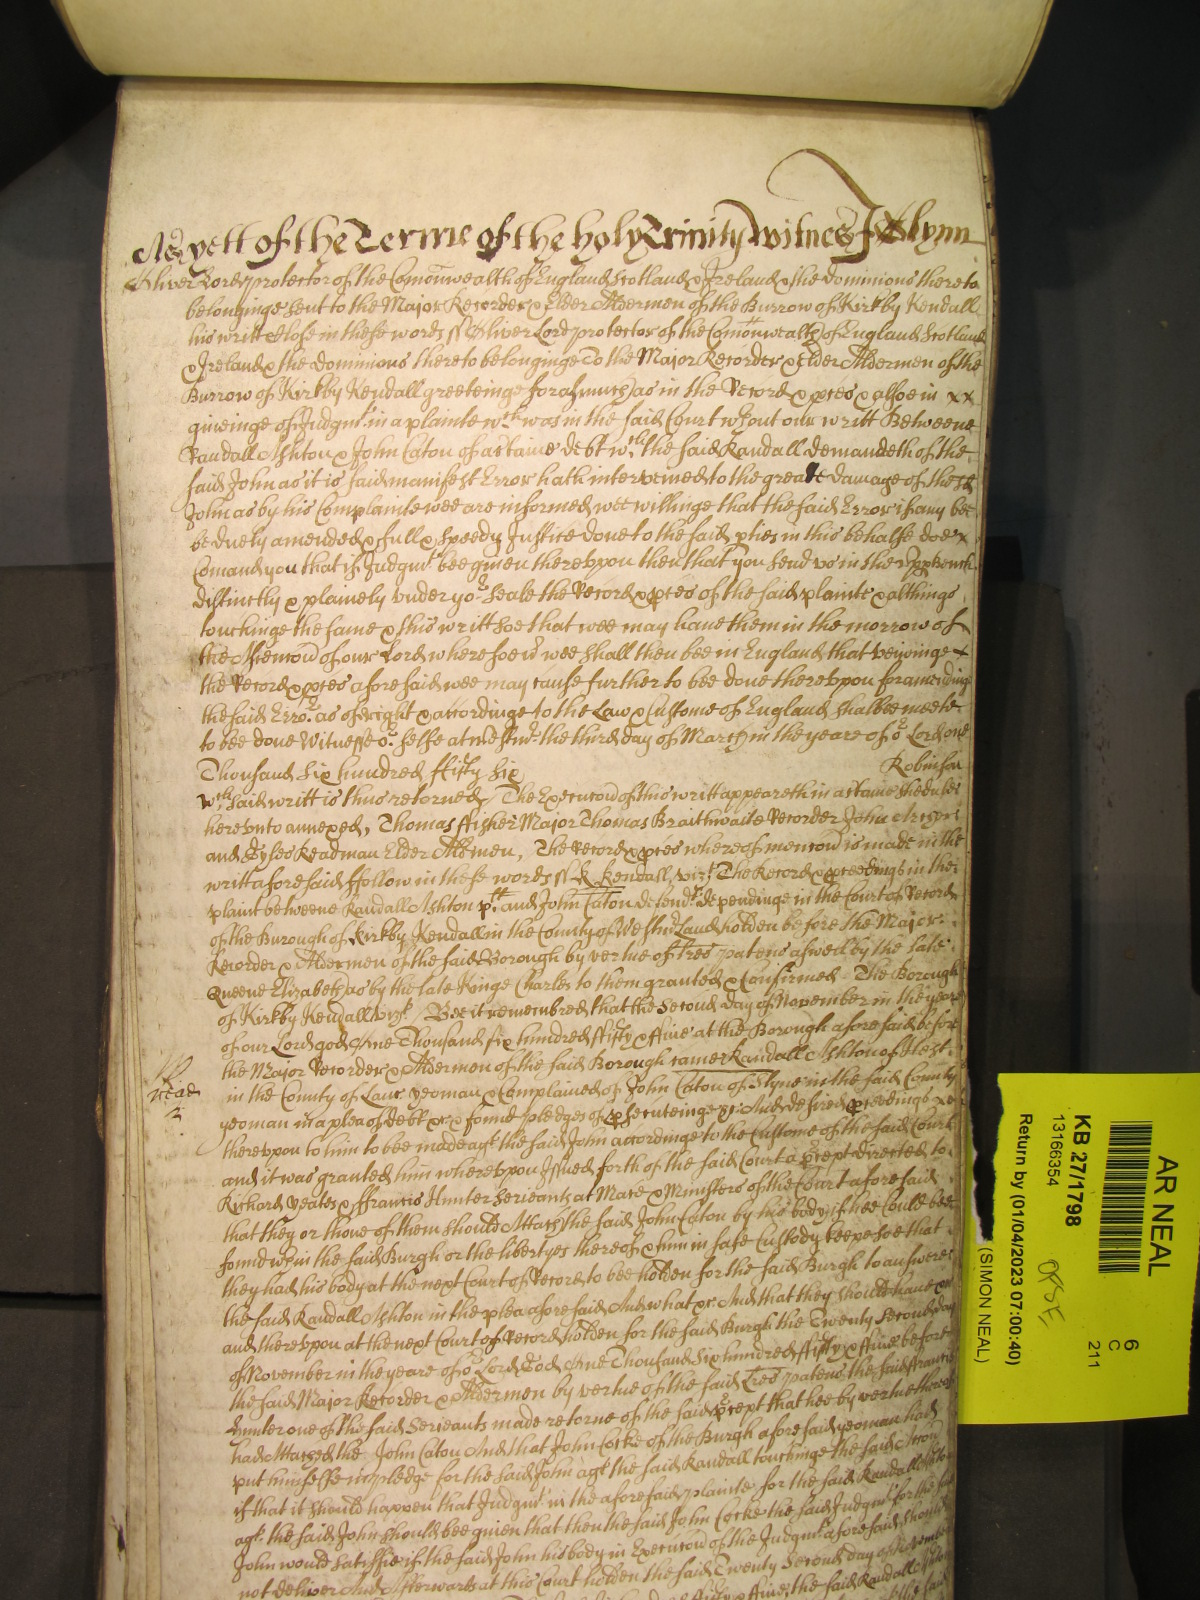 As yett of the Terme of the holy Trinity witnes J Glynn
Oliver Lord protector of the Comonwealth of England Scotland & Ireland & the dominions thereto
belonginge sent to the Major Recorder & Elder Aldermen of the Burrow of Kirkby Kendall
his writt close in these words ss Oliver Lord protector of the Comonwealth of England Scotland
& Ireland & the dominions thereto belonginge To the Major Recorder & Elder Aldermen of the
Burrow of Kirkby Kendall greeteinge forasmuch as in the Record & pces & alsoe in xx
giveinge of Judgmt in a plainte wch was in the said Court wthout our writt Betweene
Randall Ashton & John Caton of a certaine debt wch the said Randall demandeth of the
said John as it is said manifest Error hath intervened to the greate damage of the sd
John as by his Complainte wee are informed wee willinge that the said Error if any bee
bee duely amended & full & speedy Justice done to the said pties in this behalfe doe x
Comand you that if Judgmt bee given thereupon then that you send to us in the uppbench
distinctly & plainely under yor Seale the Record & pces of the said plainte & althings
touchinge the same & this writt soe that wee may have them in the morrow of
the Ascencon of our Lord wheresoevr wee shall then bee in England that veiwinge +
the Record & pces aforesaid wee may cause further to bee done thereupon for amendinge
the said Error as of right & accordinge to the Law & Custome of England shalbee meete
to bee done Witnesse or selfe at Westmr the third day of March in the yeare of or Lord one
Thousand Six hundred ffifty Six Robinson
wch said writt is thus returned / The Execucon of this writt appeareth in a certaine Shedule
hereunto annexed, Thomas ffisher Major Thomas Braithwaite Recorder John
and Gyles Readman Elder Aldermen, The Record & pces whereof mencon is made in the
writt aforesaid ffollow in these words ss K Kendall vizt The Record & pceedings in the
plaint betweene Randall Ashton plt and John Caton defendt dependinge in the Court of Record
of the Burough of Kirkby Kendall in the County of Westmrland holden before the Major
Recorder & Aldermen of the said Borough by vertue of tres patens aswell by the late
Queene Elizabeth as by the late Kinge Charles to them granted & Confirmed The Borough
of Kirkby Kendall vizt / Bee it remembred that the Second day of November in the yeare
of our Lord god One Thousand six hundred ffifty & ffive at the Borough aforesaid before
the Major Recorder & Aldermen of the said Borough came Randall Ashton of
in the County of Lanc yeoman & Complained of John Caton of Slyne in the said County
yeoman in a plea of debt &c & found pledges of psecuteinge &c And desired pceedings
thereupon to him to bee made agt the said John accordinge to the Custome of the said Court
and it was granted him whereupon Issued forth of the said Court a precept directed to
Richard Yeates & ffrancis Hunter Serieants at Mace & Ministers of the Court aforesaid
that they or thone of them should Attach the said John Caton by his body if hee Could bee
found wthin the said Burgh or the libertyes thereof & him in safe Custody keepe soe that
they had his body at the next Court of Record to bee holden for the said Burgh to answere
the said Randall Ashton in the plea aforesaid And what &c And that they should have
and thereupon at the next Court of Record holden for the said Burgh the Twenty Second day
of November in the yeare of or Lord God One Thousand Six hundred ffifty & ffive before
the said Major Recorder & Aldermen by vertue of the said Tres patens the said ffrancis
Hunter one of the said Serieants made retorne of the said precept that hee by vertue thereof
had Attached the John Caton And that John Cocke of the Burgh aforesaid yeoman had
put himselfe in pledge for the said John agt the said Randall touchinge the said Accon
if that it should happen that Judgmt in the aforesaid plainte for the said Randall Ashton
agt the said John should bee given that then the said John Cocke the said Judgmt for the said
John would satisffie if the said John his body in Execucon of the Judgmt aforesaid should
not deliver And Afterwards at this Court holden the said Twenty Second day of November
ffifty & ffive, the said Randall Ashton
AR NEAL
KB 27/1798
13166354
Return by (01/04/2023 07:00:40)
(SIMON NEAL)
6
C
211